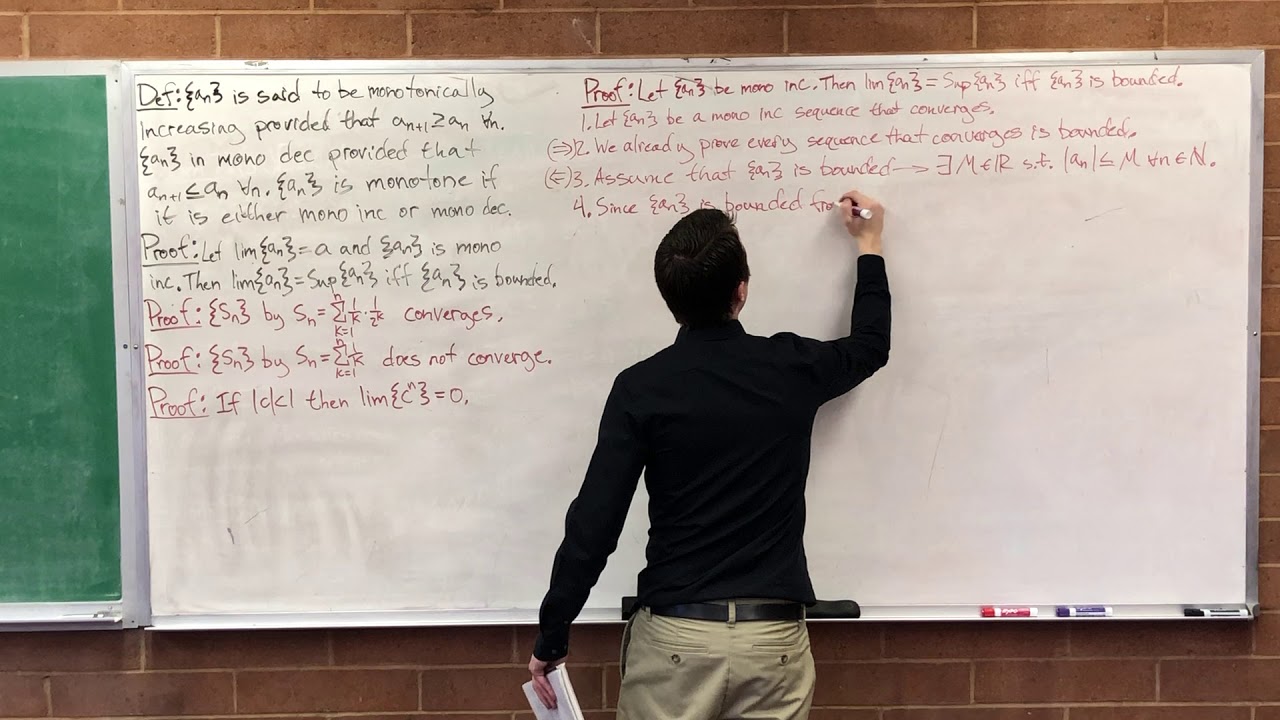 Def: {aₙ} is said to be monotonically
increasing provided that aₙ₊₁ ≥ aₙ ∀n.
{aₙ} in mono dec provided that
aₙ₊₁ ≤ aₙ ∀n. {aₙ} is monotone if
it is either mono inc or mono dec.
Proof: Let lim{aₙ} = a and {aₙ} is mono
inc. Then lim{aₙ} = Sup{aₙ} iff {aₙ} is bounded.
Proof: {Sₙ} by Sₙ = ∑ₖ₌₁ⁿ 1/k · 1/2ᵏ converges.
Proof: {Sₙ} by Sₙ = ∑ₖ₌₁ⁿ 1/k does not converge.
Proof: If |c|<1 then lim{cⁿ} = 0.
Proof: Let {aₙ} be mono inc. Then lim{aₙ} = Sup{aₙ} iff {aₙ} is bounded.
1. Let {aₙ} be a mono inc sequence that converges.
(⇒) 2. We already prove every sequence that converges is bounded.
(⇐) 3. Assume that {aₙ} is bounded → ∃ M ∈ ℝ s.t. |aₙ| ≤ M ∀n ∈ ℕ.
4. Since {aₙ} is bounded fro